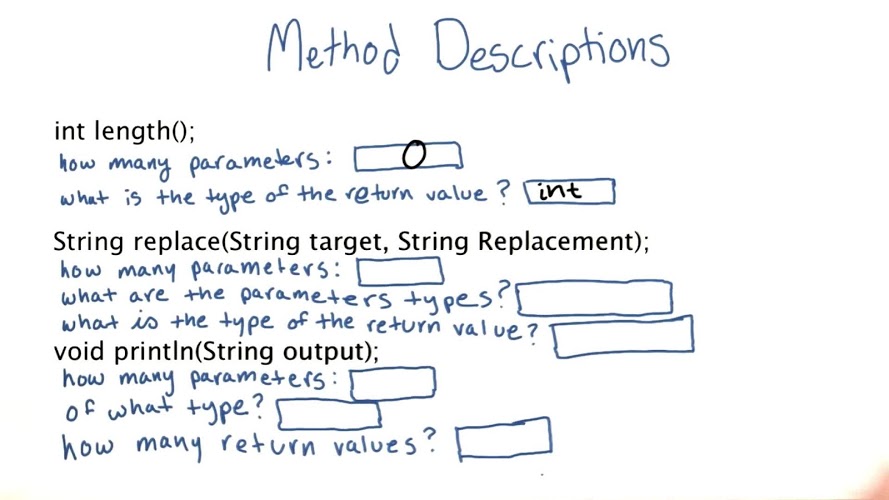 Method Descriptions
int length();
how many parameters: 0
what is the type of the return value? int
String replace(String target, String Replacement);
how many parameters:
what are the parameters types?
what is the type of the return value?
void println(String output);
how many parameters:
of what type?
how many return values?